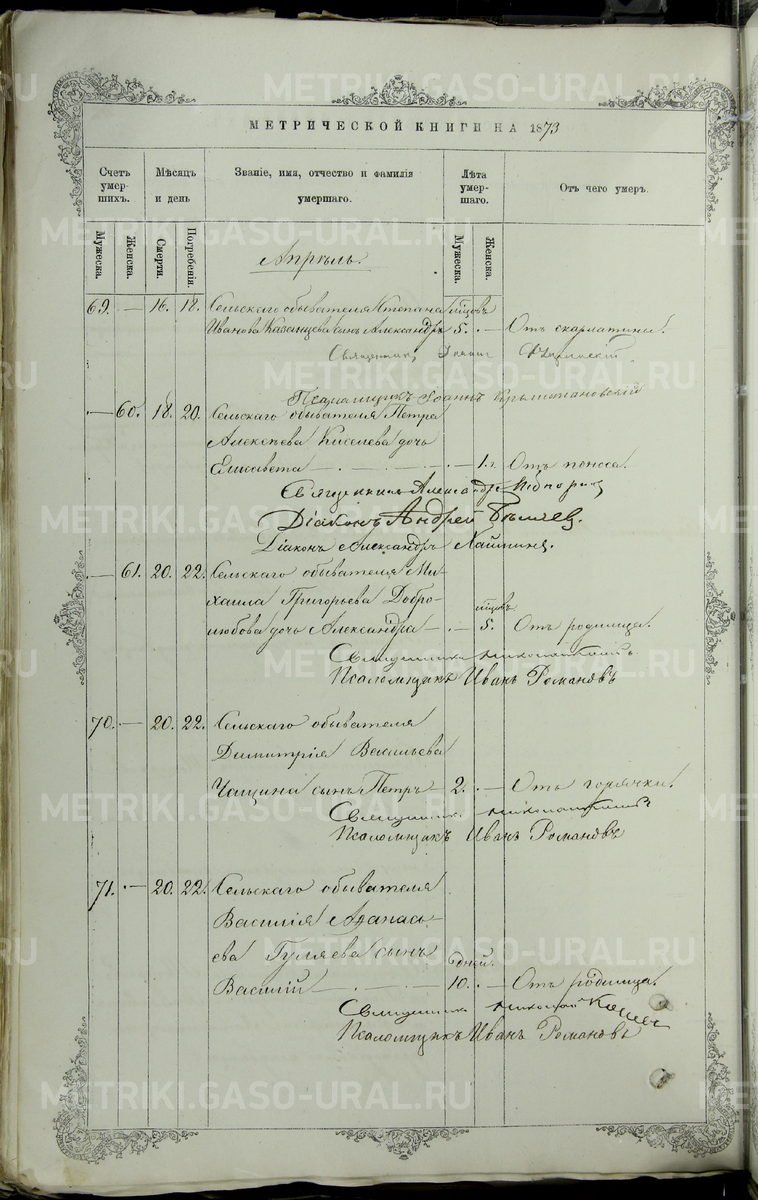 МЕТРИЧЕСКОЙ КНИГИ НА 1873
Счетъ умер- шихъ.
Мѣсяцъ и день
Званіе, имя, отчество и фамилія умершаго.
Лѣта умер- шаго.
Отъ чего умеръ.
Мужеска.
Женска.
Смерти.
Погребенія.
Мужеска.
Женска.
Апрѣль.
69. — 16. 18. Сельскаго обывателя Степана мѣсцовъ
Иванова Казанцева сынъ Александръ 5. — Отъ скарлатины.
Священникъ
Псаломщикъ Іоаннъ
— 60. 18. 20. Сельскаго обывателя Петра
Алексѣева Киселева дочь
Елисавета — 1 г. Отъ поноса.
Священникъ Александръ
Діаконъ Андрей
Діаконъ Александръ
— 61. 20. 22. Сельскаго обывателя Ми-
хаила Григорьева Добро-
мѣсцовъ
любова дочь Александра — 5. Отъ родимца.
Священникъ
Псаломщикъ Иванъ Романовъ
70. — 20. 22. Сельскаго обывателя
Димитрія Васильева
Чащина сынъ Петръ — 2. — Отъ горячки.
Священникъ
Псаломщикъ Иванъ Романовъ
71. — 20. 22. Сельскаго обывателя
Василія Аѳанась-
ева Гуляева сынъ
дней.
Василій — 10. — Отъ родимца.
Священникъ Николай
Псаломщикъ Иванъ Романовъ
METRIKI.GASO-URAL.RU